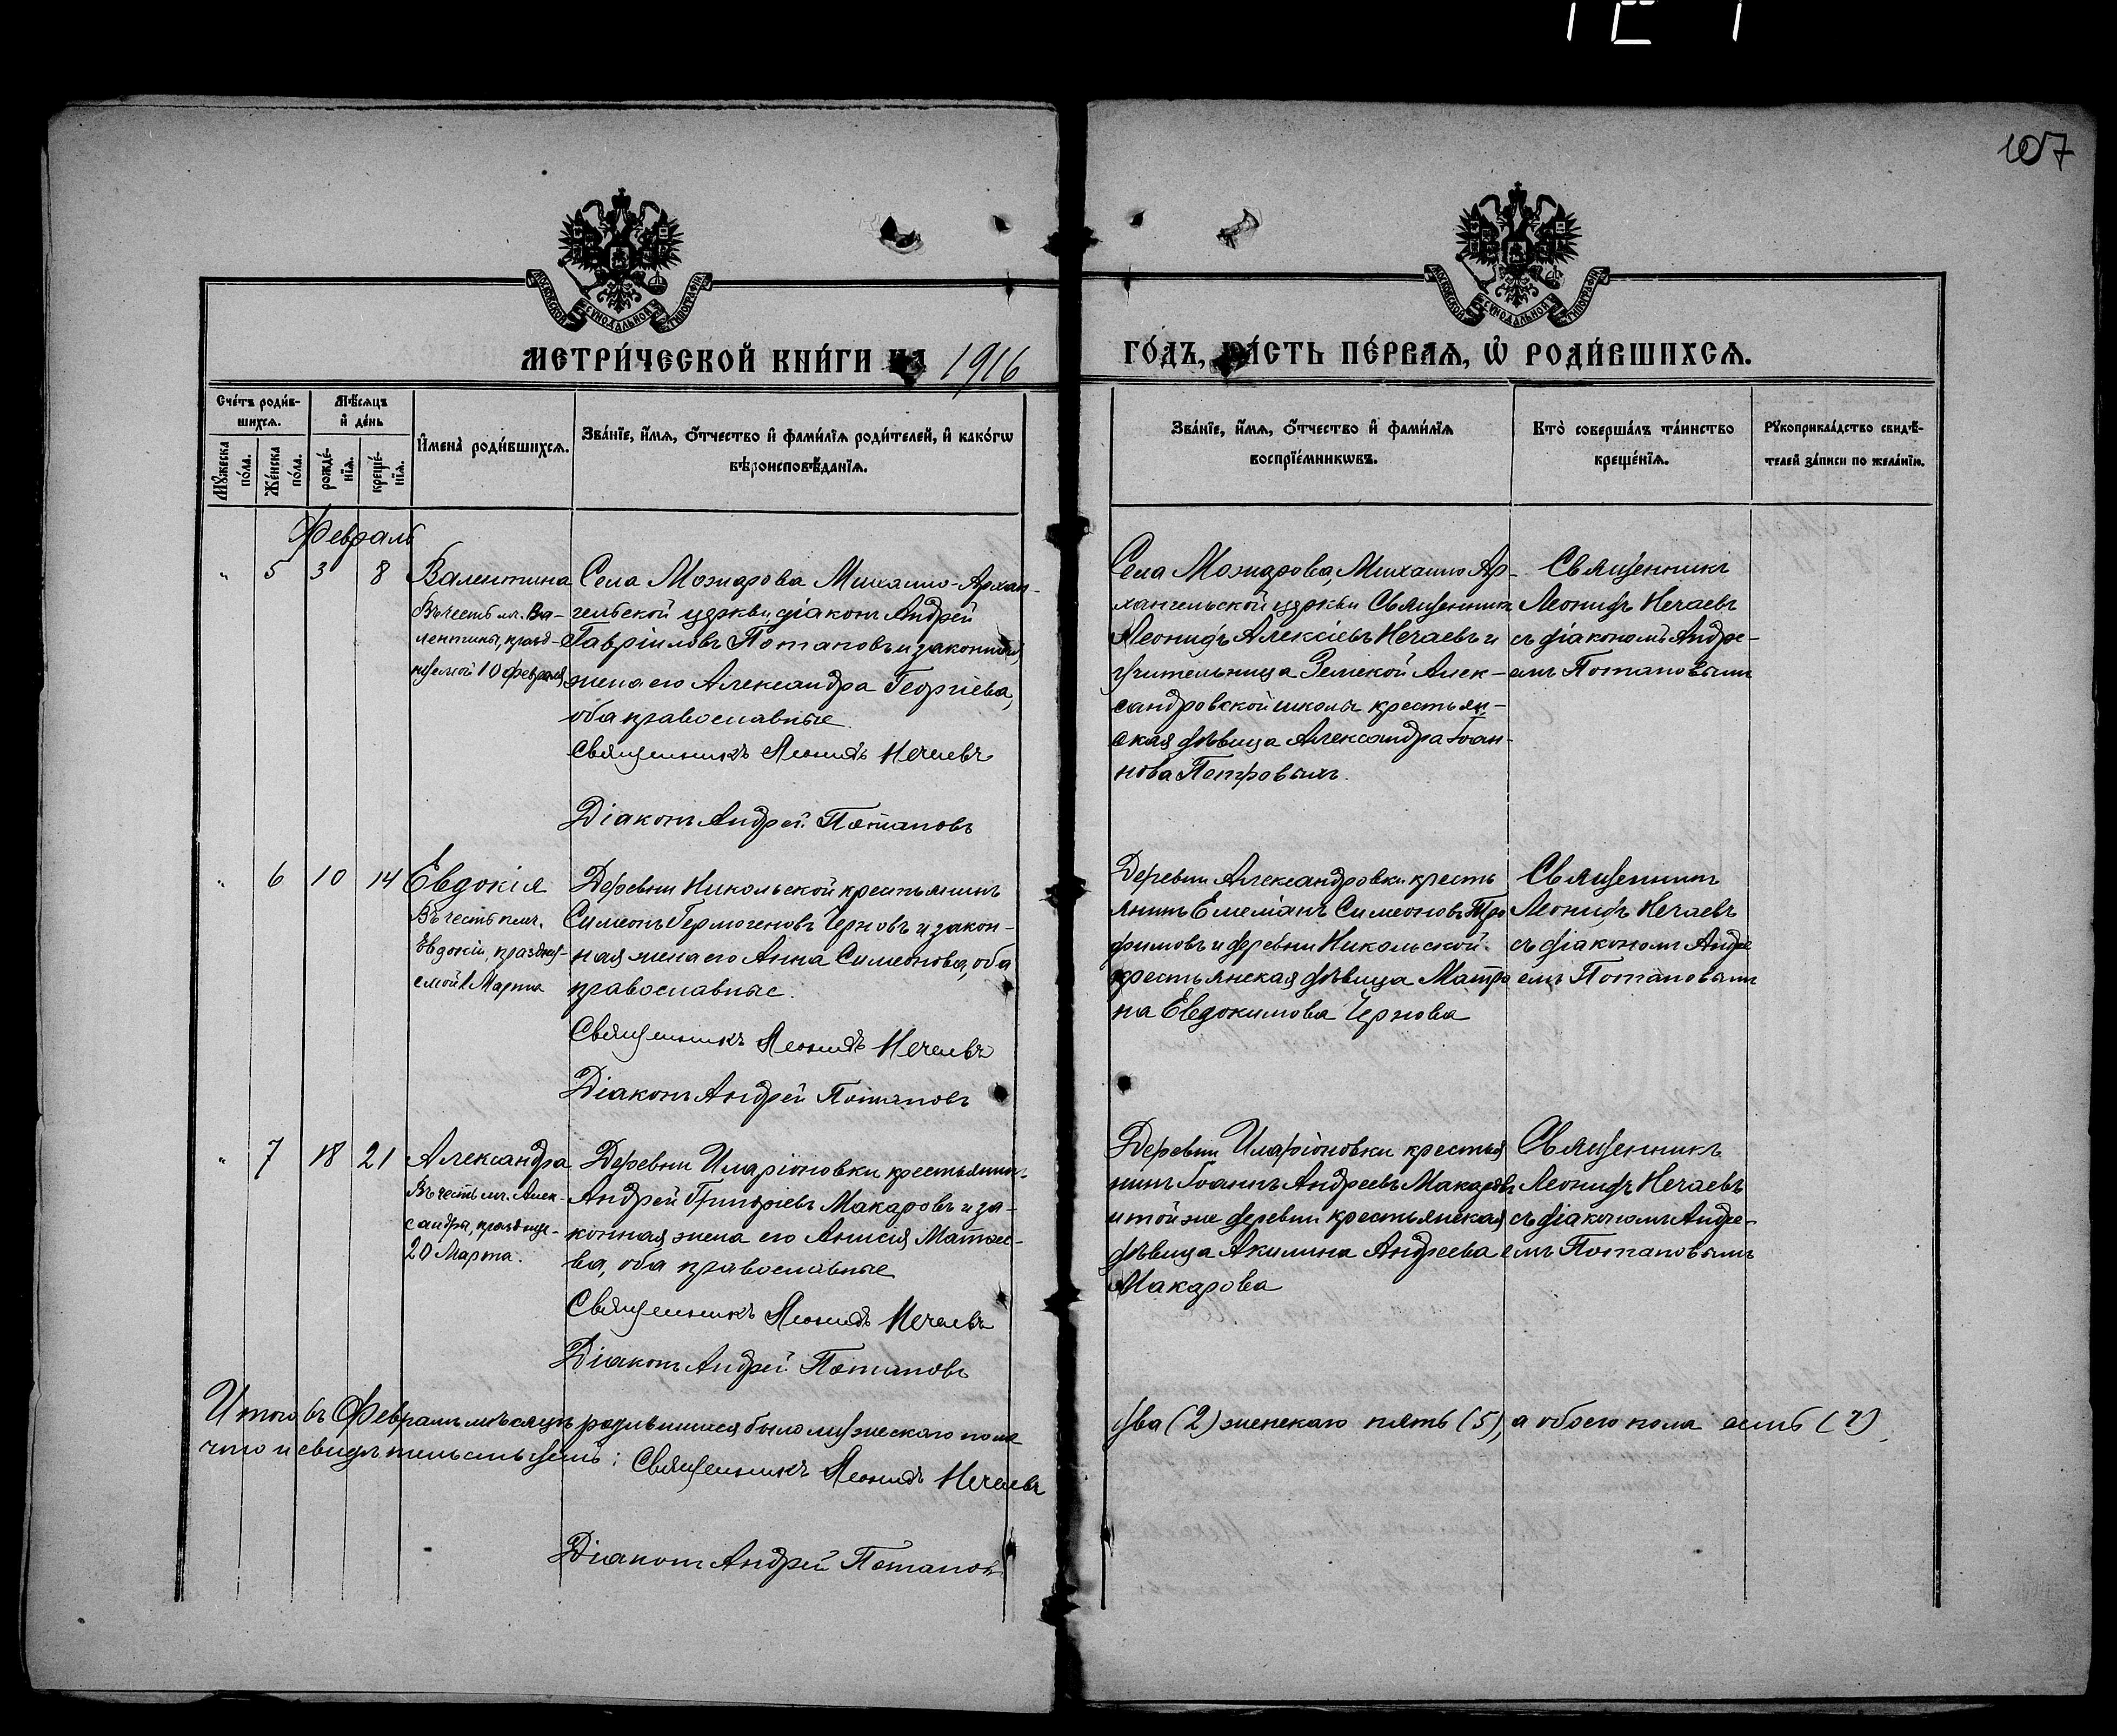 107
МОСКОВСКОЙ СѴНОДАЛЬНОЙ ТИПОГРАФІИ
МОСКОВСКОЙ СѴНОДАЛЬНОЙ ТИПОГРАФІИ
МЕТРИ́ЧЕСКОЙ КНИ́ГИ НА 1916
ГО́ДЪ, ЧА́СТЬ ПЕ́РВАЯ, Ѡ҆ РОДИ́ВШИХСЯ.
Сче́тъ роди́в-
шихся.
Мѣ́сяцъ
и҆ де́нь
Мꙋ́жеска
по́ла.
Же́нска
по́ла.
рожде́-
нїя.
креще́-
нїя.
И҆мена̀ роди́вшихся.
Зва́нїе, и҆́мя, ѻ҆́тчество и҆ фами́лїя роди́телей, и҆ како́гѡ
вѣроисповѣ́данїя.
Зва́нїе, и҆́мя, ѻ҆́тчество и҆ фами́лїя
воспрїе́мникѡвъ.
Кто̀ соверша́лъ та́инство
креще́нїя.
Рꙋкоприкла́дство свидѣ́-
телей за́писи по жела́нїю.
Февраль
" 5 3 8
Валентина
Въ честь мч. Ва-
лентины, празд-
нуемой 10 февраля
Села Можарова Михаило-Архан-
гельской церкви, діаконъ Андрей
Гавріиловъ Потаповъ и законная
жена его Александра Георгіева,
оба православные.
Священникъ Леонидъ Нечаевъ
Діаконъ Андрей Потаповъ
Села Можарова, Михаило Ар-
хангельской церкви Священникъ
Леонидъ Алексіевъ Нечаевъ и
учительница Земской Алек-
сандровской школы крестьян-
ская дѣвица Александра Іоан-
нова Петровыхъ.
Священникъ
Леонидъ Нечаевъ
съ діакономъ Андре-
емъ Потаповымъ
" 6 10 14
Евдокія
Въ честь пмч.
Евдокіи, празднуе-
смой 1 Марта
Деревни Никольской крестьянинъ
Симеонъ Гермогеновъ Черновъ и закон-
ная жена его Анна Симеонова, оба
православные.
Священникъ Леонидъ Нечаевъ
Діаконъ Андрей Потаповъ
Деревни Александровки кресть
янинъ Емеліанъ Симеоновъ Тро
фимовъ и деревни Никольской
крестьянская дѣвица Матро
на Евдокимова Чернова
Священникъ
Леонидъ Нечаевъ
съ діакономъ Андре
емъ Потаповымъ
" 7 18 21
Александра
Въ честь мч. Алек-
сандры, празднуе-
20 Марта.
Деревни Иларіоновки крестьянинъ
Андрей Григоріевъ Макаровъ и за-
конная жена его Анисія Матѳее-
ва, оба православные
Священникъ Леонидъ Нечаевъ
Діаконъ Андрей Потаповъ
Деревни Иларіоновки крестья
нинъ Іоаннъ Андреевъ Макаровъ
и той же деревни крестьянская
дѣвица Акилина Андреева
Макарова
Священникъ
Леонидъ Нечаевъ
съ діакономъ Андре-
емъ Потаповымъ
Итого въ Февралѣ мѣсяцѣ родившихся было мужескаго пола
два (2) женскаго пять (5), а обоего пола семь (7),
что и свидѣтельствуемъ: Священникъ Леонидъ Нечаевъ
Діаконъ Андрей Потаповъ